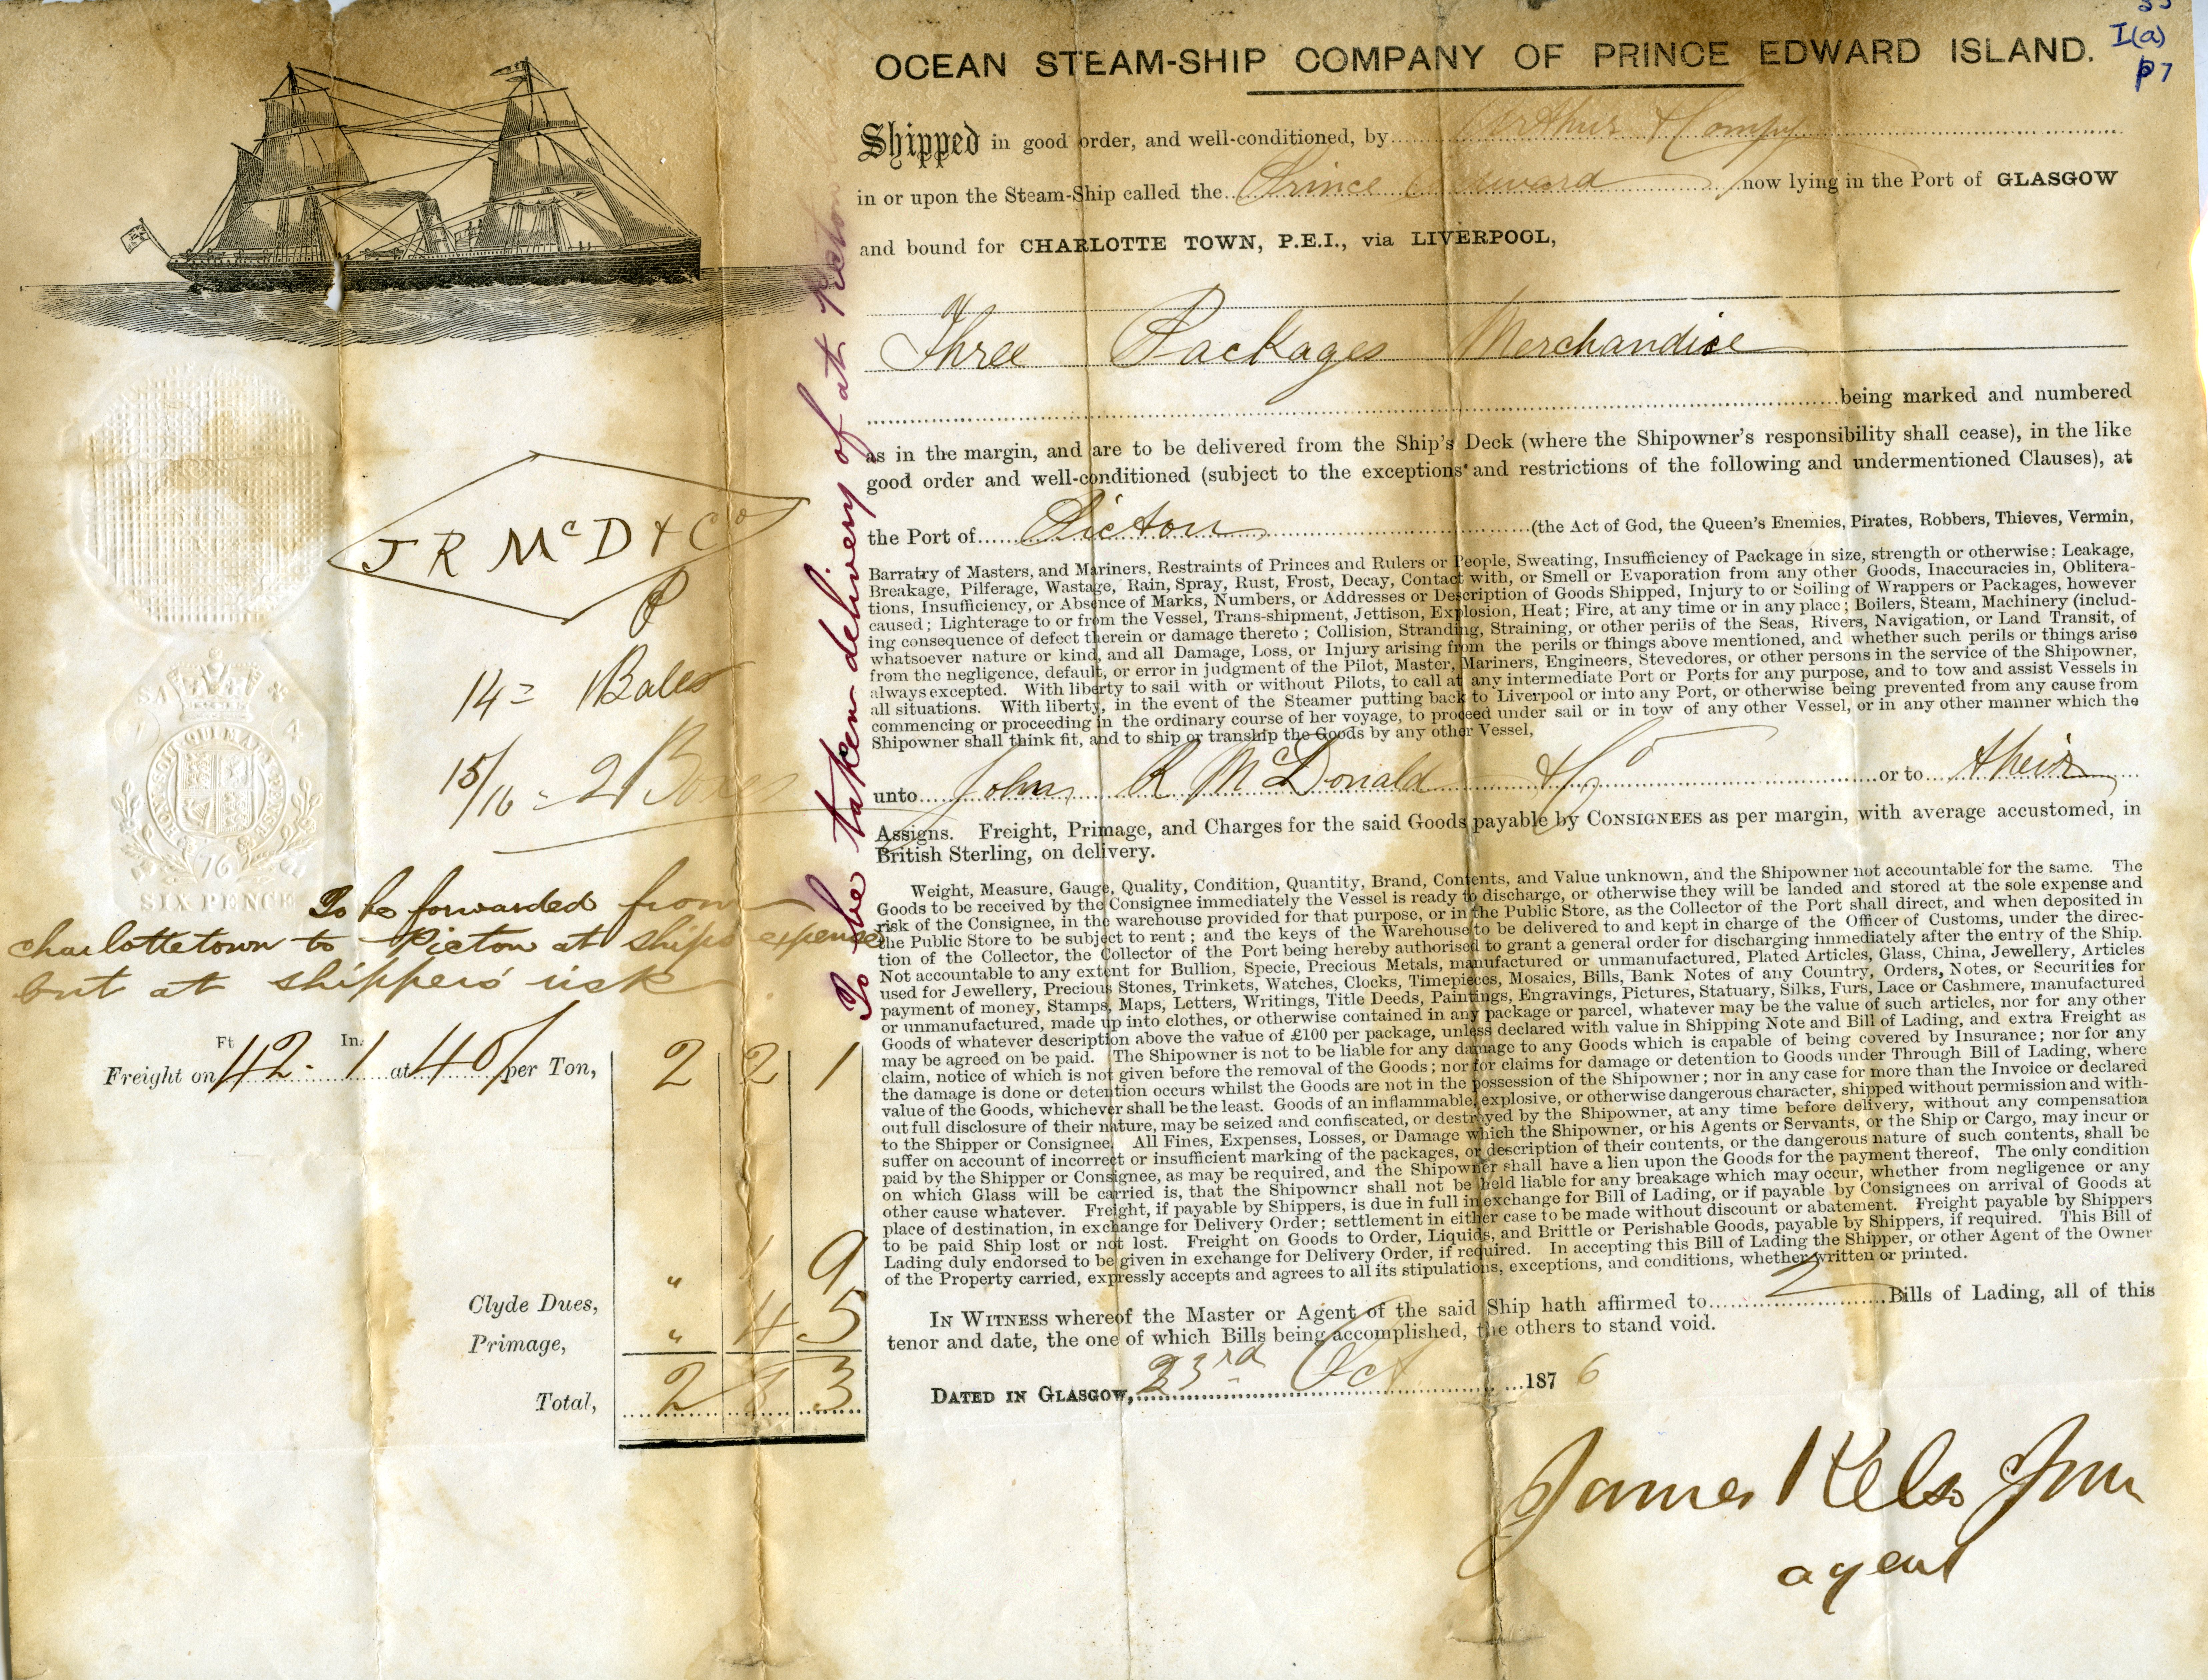 I(a)
p7
OCEAN STEAM-SHIP COMPANY OF PRINCE EDWARD ISLAND.
Shipped in good order, and well-conditioned, by Arthur & Compy
in or upon the Steam-Ship called the Prince Edward now lying in the Port of GLASGOW
and bound for CHARLOTTE TOWN, P.E.I., via LIVERPOOL,
Three Packages Merchandise
being marked and numbered
as in the margin, and are to be delivered from the Ship's Deck (where the Shipowner's responsibility shall cease), in the like
good order and well-conditioned (subject to the exceptions and restrictions of the following and undermentioned Clauses), at
the Port of Pictou (the Act of God, the Queen's Enemies, Pirates, Robbers, Thieves, Vermin,
Barratry of Masters, and Mariners, Restraints of Princes and Rulers or People, Sweating, Insufficiency of Package in size, strength or otherwise; Leakage,
Breakage, Pilferage, Wastage, Rain, Spray, Rust, Frost, Decay, Contact with, or Smell or Evaporation from any other Goods, Inaccuracies in, Oblitera-
tions, Insufficiency, or Absence of Marks, Numbers, or Addresses or Description of Goods Shipped, Injury to or Soiling of Wrappers or Packages, however
caused; Lighterage to or from the Vessel, Trans-shipment, Jettison, Explosion, Heat; Fire, at any time or in any place; Boilers, Steam, Machinery (includ-
ing consequence of defect therein or damage thereto; Collision, Stranding, Straining, or other perils of the Seas, Rivers, Navigation, or Land Transit, of
whatsoever nature or kind, and all Damage, Loss, or Injury arising from the perils or things above mentioned, and whether such perils or things arise
from the negligence, default, or error in judgment of the Pilot, Master, Mariners, Engineers, Stevedores, or other persons in the service of the Shipowner,
always excepted. With liberty to sail with or without Pilots, to call at any intermediate Port or Ports for any purpose, and to tow and assist Vessels in
all situations. With liberty, in the event of the Steamer putting back to Liverpool or into any Port, or otherwise being prevented from any cause from
commencing or proceeding in the ordinary course of her voyage, to proceed under sail or in tow of any other Vessel, or in any other manner which the
Shipowner shall think fit, and to ship or tranship the Goods by any other Vessel,
unto John R McDonald & Co or to their
Assigns. Freight, Primage, and Charges for the said Goods payable by CONSIGNEES as per margin, with average accustomed, in
British Sterling, on delivery.
Weight, Measure, Gauge, Quality, Condition, Quantity, Brand, Contents, and Value unknown, and the Shipowner not accountable for the same. The
Goods to be received by the Consignee immediately the Vessel is ready to discharge, or otherwise they will be landed and stored at the sole expense and
risk of the Consignee, in the warehouse provided for that purpose, or in the Public Store, as the Collector of the Port shall direct, and when deposited in
the Public Store to be subject to rent; and the keys of the Warehouse to be delivered to and kept in charge of the Officer of Customs, under the direc-
tion of the Collector, the Collector of the Port being hereby authorised to grant a general order for discharging immediately after the entry of the Ship.
Not accountable to any extent for Bullion, Specie, Precious Metals, manufactured or unmanufactured, Plated Articles, Glass, China, Jewellery, Articles
used for Jewellery, Precious Stones, Trinkets, Watches, Clocks, Timepieces, Mosaics, Bills, Bank Notes of any Country, Orders, Notes, or Securities for
payment of money, Stamps, Maps, Letters, Writings, Title Deeds, Paintings, Engravings, Pictures, Statuary, Silks, Furs, Lace or Cashmere, manufactured
or unmanufactured, made up into clothes, or otherwise contained in any package or parcel, whatever may be the value of such articles, nor for any other
Goods of whatever description above the value of £100 per package, unless declared with value in Shipping Note and Bill of Lading, and extra Freight as
may be agreed on be paid. The Shipowner is not to be liable for any damage to any Goods which is capable of being covered by Insurance; nor for any
claim, notice of which is not given before the removal of the Goods; nor for claims for damage or detention to Goods under Through Bill of Lading, where
the damage is done or detention occurs whilst the Goods are not in the possession of the Shipowner; nor in any case for more than the Invoice or declared
value of the Goods, whichever shall be the least. Goods of an inflammable, explosive, or otherwise dangerous character, shipped without permission and with-
out full disclosure of their nature, may be seized and confiscated, or destroyed by the Shipowner, at any time before delivery, without any compensation
to the Shipper or Consignee. All Fines, Expenses, Losses, or Damage which the Shipowner, or his Agents or Servants, or the Ship or Cargo, may incur or
suffer on account of incorrect or insufficient marking of the packages, or description of their contents, or the dangerous nature of such contents, shall be
paid by the Shipper or Consignee, as may be required, and the Shipowner shall have a lien upon the Goods for the payment thereof. The only condition
on which Glass will be carried is, that the Shipowner shall not be held liable for any breakage which may occur, whether from negligence or any
other cause whatever. Freight, if payable by Shippers, is due in full in exchange for Bill of Lading, or if payable by Consignees on arrival of Goods at
place of destination, in exchange for Delivery Order; settlement in either case to be made without discount or abatement. Freight payable by Shippers
to be paid Ship lost or not lost. Freight on Goods to Order, Liquids, and Brittle or Perishable Goods, payable by Shippers, if required. This Bill of
Lading duly endorsed to be given in exchange for Delivery Order, if required. In accepting this Bill of Lading the Shipper, or other Agent of the Owner
of the Property carried, expressly accepts and agrees to all its stipulations, exceptions, and conditions, whether written or printed.
IN WITNESS whereof the Master or Agent of the said Ship hath affirmed to 2 Bills of Lading, all of this
tenor and date, the one of which Bills being accomplished, the others to stand void.
DATED IN GLASGOW, 23rd Oct 1876
James Kelso Junr
agent
To be taken delivery of at Pictou
J R McD & Co
P
14 = 1 Bales
15/16 = 2 Boxes
HONI SOIT QUI MAL Y PENSE
76
SIX PENCE
To be forwarded from
charlottetown to Pictou at ships expense
but at shippers' risk
Ft In.
Freight on 42 . 1 at 40/ per Ton, 2 2 1
" 1 9
Clyde Dues,
Primage, " 4 5
Total, 2 8 3